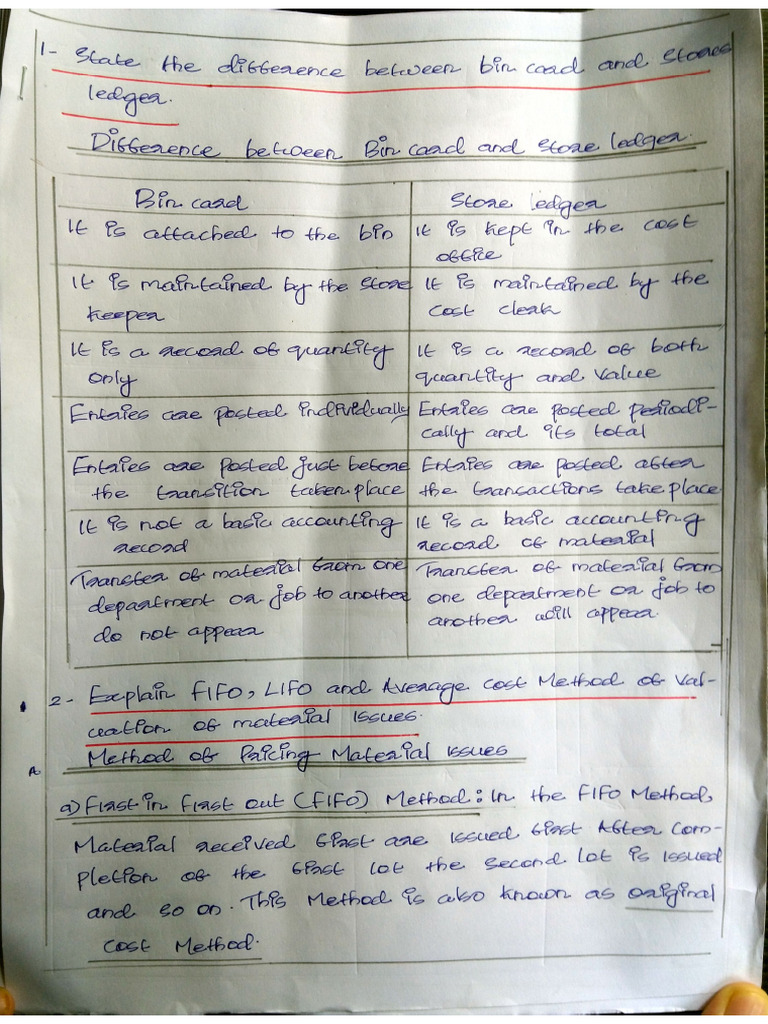 1- State the difference between bin card and stores
ledger.
Difference between Bin card and store ledger.
Bin card
Store ledger
It is attached to the bin
It is kept in the cost
office
It is maintained by the store
keeper
It is maintained by the
cost clerk
It is a record of quantity
only
It is a record of both
quantity and value
Entries are posted individually
Entries are posted periodi-
cally and its total
Entries are posted just before
the transition taken place
Entries are posted after
the transactions take place
It is not a basic accounting
record
It is a basic accounting
record of material
Transfer of material from one
department or job to another
do not appear
Transfer of material from
one department or job to
another will appear.
2- Explain FIFO, LIFO and Average cost Method of val-
uation of material issues.
Method of Pricing Material issues
a) First in First out (FIFO) Method: In the FIFO Method,
Material received first are issued first After com-
pletion of the first lot the second lot is issued
and so on. This Method is also known as original
cost Method.